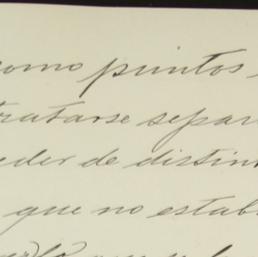 como puntos
tratarse separ
eder de distin
que no estab